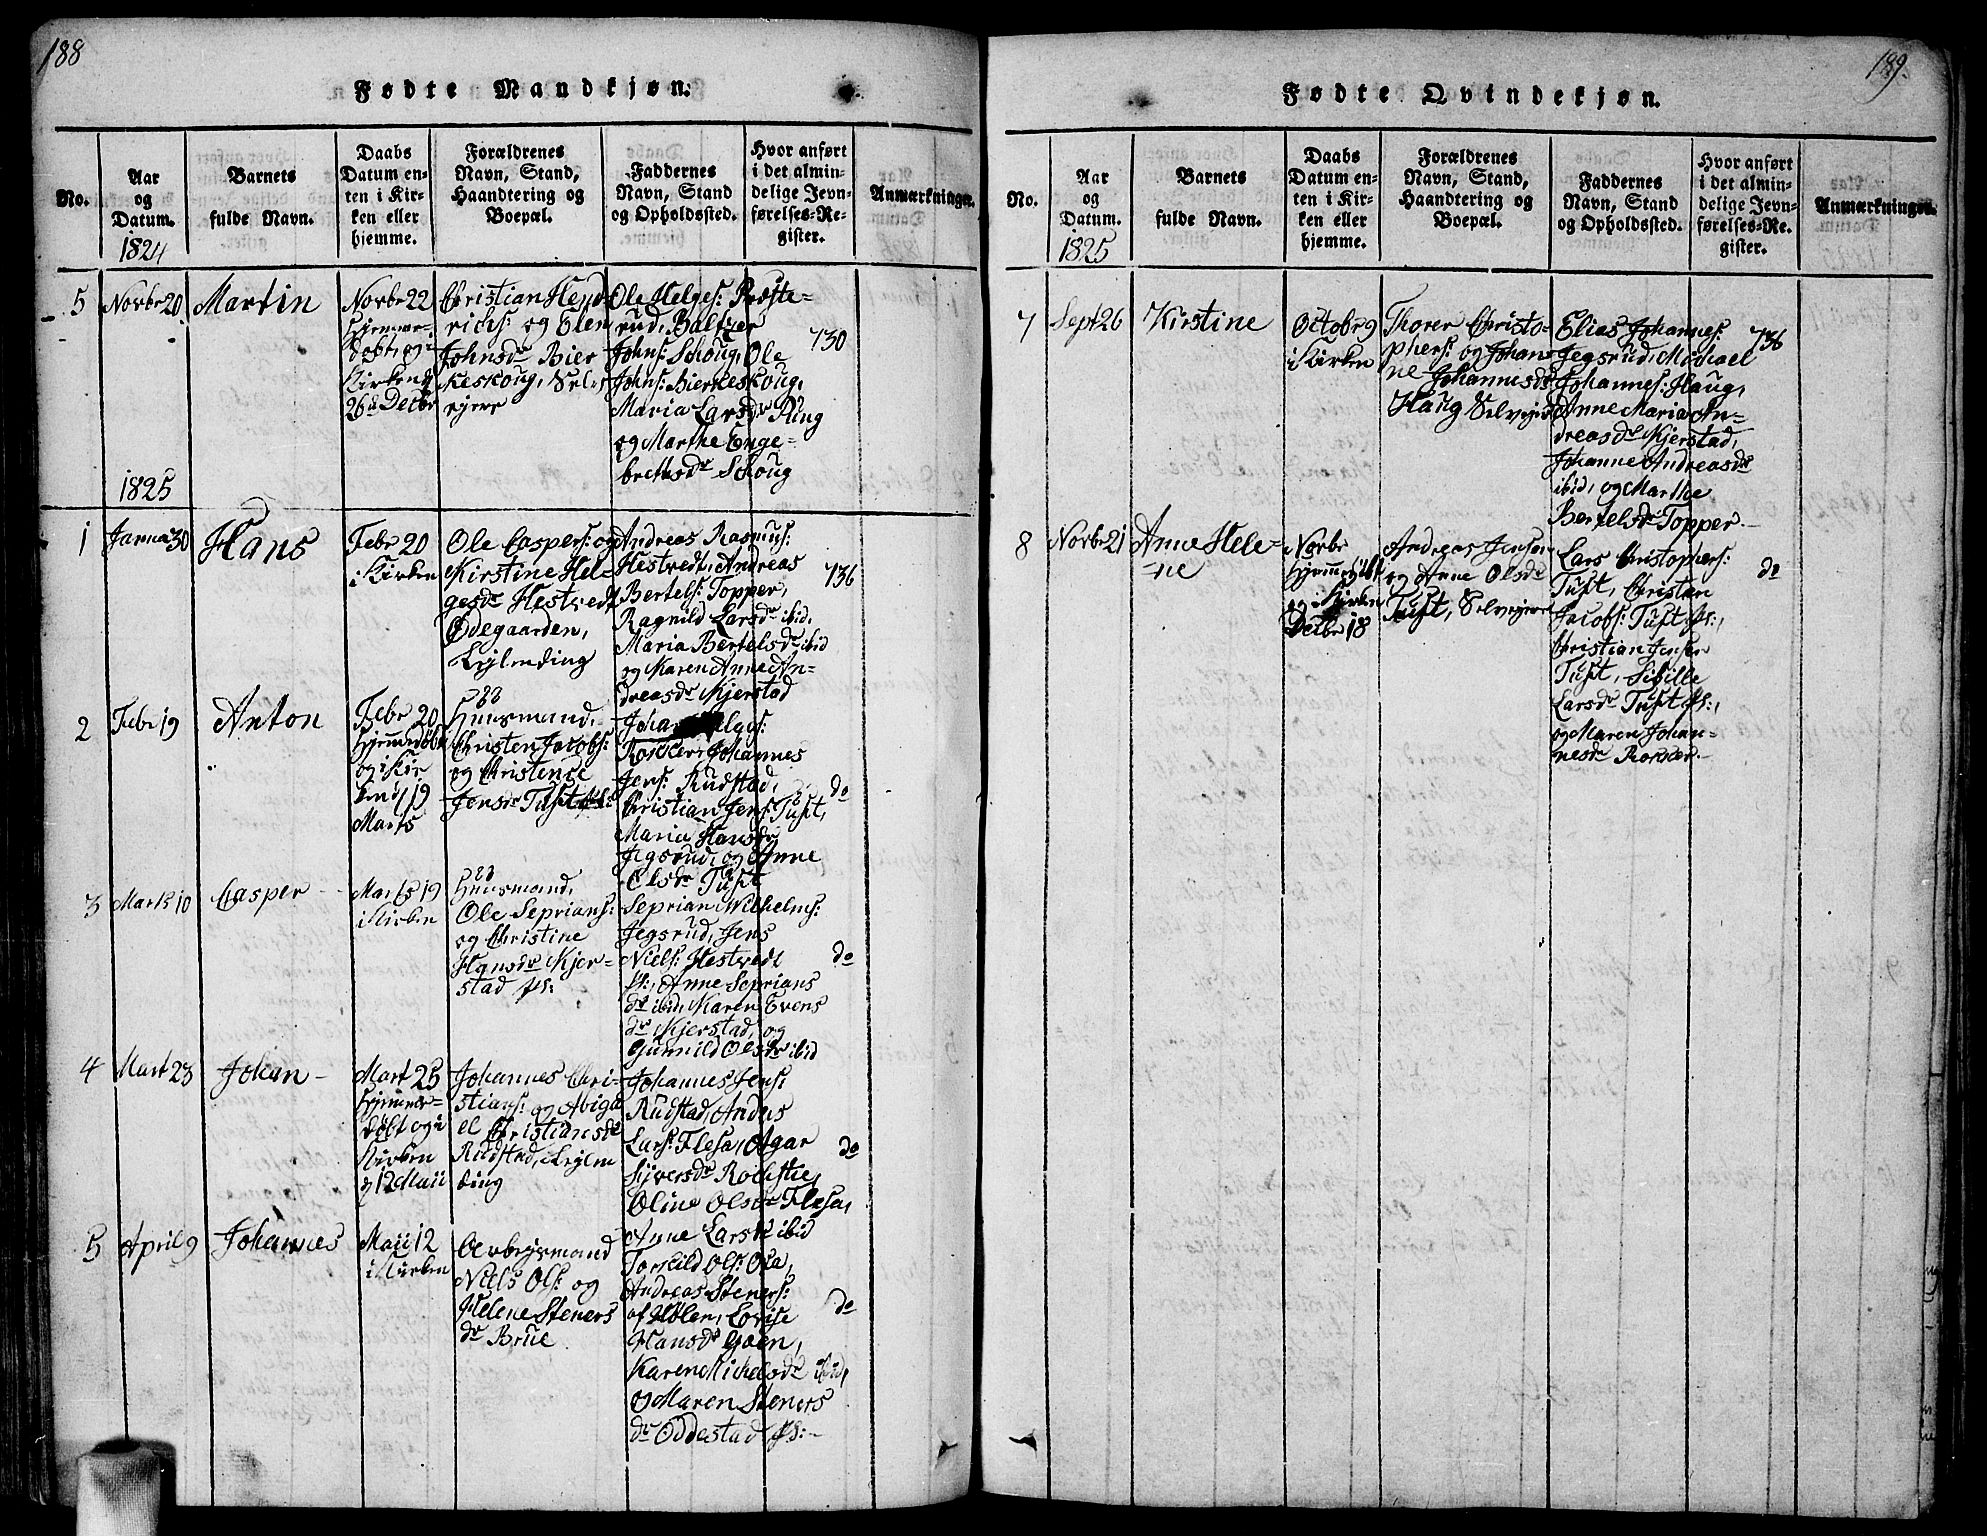 188
Fødte Mandkjøn.
No.
Aar
og
Datum.
1824
Barnets
fulde Navn.
Daabs
Datum en-
ten i Kir-
ken eller
hjemme.
Forældrenes
Navn, Stand,
Haandtering og
Boepæl.
Faddernes
Navn, Stand
og Opholdssted.
Hvor anført
i det almin-
delige Jevn-
førelses-Re-
gister.
Anmærkninger.
5
Novbr 20
Martin
Novbr 22
hjemme-
døbt, og i
Kirken d
26d Decbr
Christian Hend-
richs: og Elen
Johnsdr Bier
keskoug, Selv
ejere
Ole Helges: Præste-
rud, Baltzer
Johns: Schoug, Ole
Johns: Bierkeskoug,
Maria Larsdr Ring
og Marthe Enge-
brethsdr Schoug
730
1825
1
Janua 30
Hans
Febr 20
i Kirken
Ole Caspers: og
Kirstine Hel-
gesdr Hestvedt
Ødegaarden,
Leilending
Andreas Rasmus:
Hestvedt, Andreas
Bertels: Topper,
Ragnild Larsdr ibid,
Maria Bertelsdr ibid
og Karen Anne An-
dreasdr Kjerstad
736
2
Febr 19
Anton
Febr 20
hjemmedøbt
og i Kir
ken d 19
Marts
Huusmand,
Christen Jacobs:
og Christense
Jensdr Tuft
Johan Helges:
Johannes
Jens: Rudstad,
Christian Jens: Tuft,
Maria Hansdr
Jegsrud, og Anne
Olsdr Tuft
do
3
Marts 10
Casper
Marts 19
i Kirken
Huusmand,
Ole Seprians:
og Christine
Hansdr Kjer-
stad ps:
Seprian Wilhelms:
Jegsrud, Jens
Niels: Hestvedt
ps:, Anne Seprians
dr ibid, Karen Evens
dr Kjerstad, og
Gunnild Olsdr ibid
do
4
Mart 23
Johan
Mart 25
hjemme-
døbt og i
Kirken
d 12 Maii
Johannes Chri-
stians: og Abiga
el Christiansdr
Rudstad, Leylen
ding
Johannes Jens:
Rudstad, Anders
Lars: Flesa, Agar
Syversdr
Oline Olsdr Flesa,
Anne Larsdr ibid
do
5
April 9
Johannes
Maii 12
i Kirken
Arbejdsmand
Niels Ols: og
Helene Steners
dr Brue
Torkild Ols: Oen,
Andreas Steners:
af Holen, Lovise
Hansdr Goen,
Karen Michelsdr ibid,
og Maren Steners
dr Oddestad ps:
do
189.
Fødte Qvindekjøn.
No.
Aar
og
Datum.
1825
Barnets
fulde Navn.
Daabs
Datum en-
ten i Kir-
ken eller
hjemme.
Forældrenes
Navn, Stand,
Haandtering og
Boepæl.
Faddernes
Navn, Stand
og Opholdssted.
Hvor anført
i det almin-
delige Jevn-
førelses-Re-
gister.
Anmærkninger.
7
Sept 26
Kirstine
Octobr 9
i Kirken
Thorer Christo-
phers: og Johan-
ne Johannesdr
Haug Selvejere
Elias Johannes:
Jegsrud, Michael
Johannes: Haug,
Anne Maria An-
dreasdr Kjerstad,
Johanne Andreasdr
ibid, og Marthe
Bertelsdr Topper.
736
8
Novbr 21
Anne Hele-
ne
Novbr
hjemmedøbt
og i Kirken
Decbr 18
Andreas Jensen
og Anne Olsdr
Tuft, Selvejere
Lars Christophers:
Tuft, Christen
Jacobs: Tuft ps:,
Christian Jenser
Tuft, Sibille
Larsdr Tuft ps:,
og Maren Johan-
nesdr
do